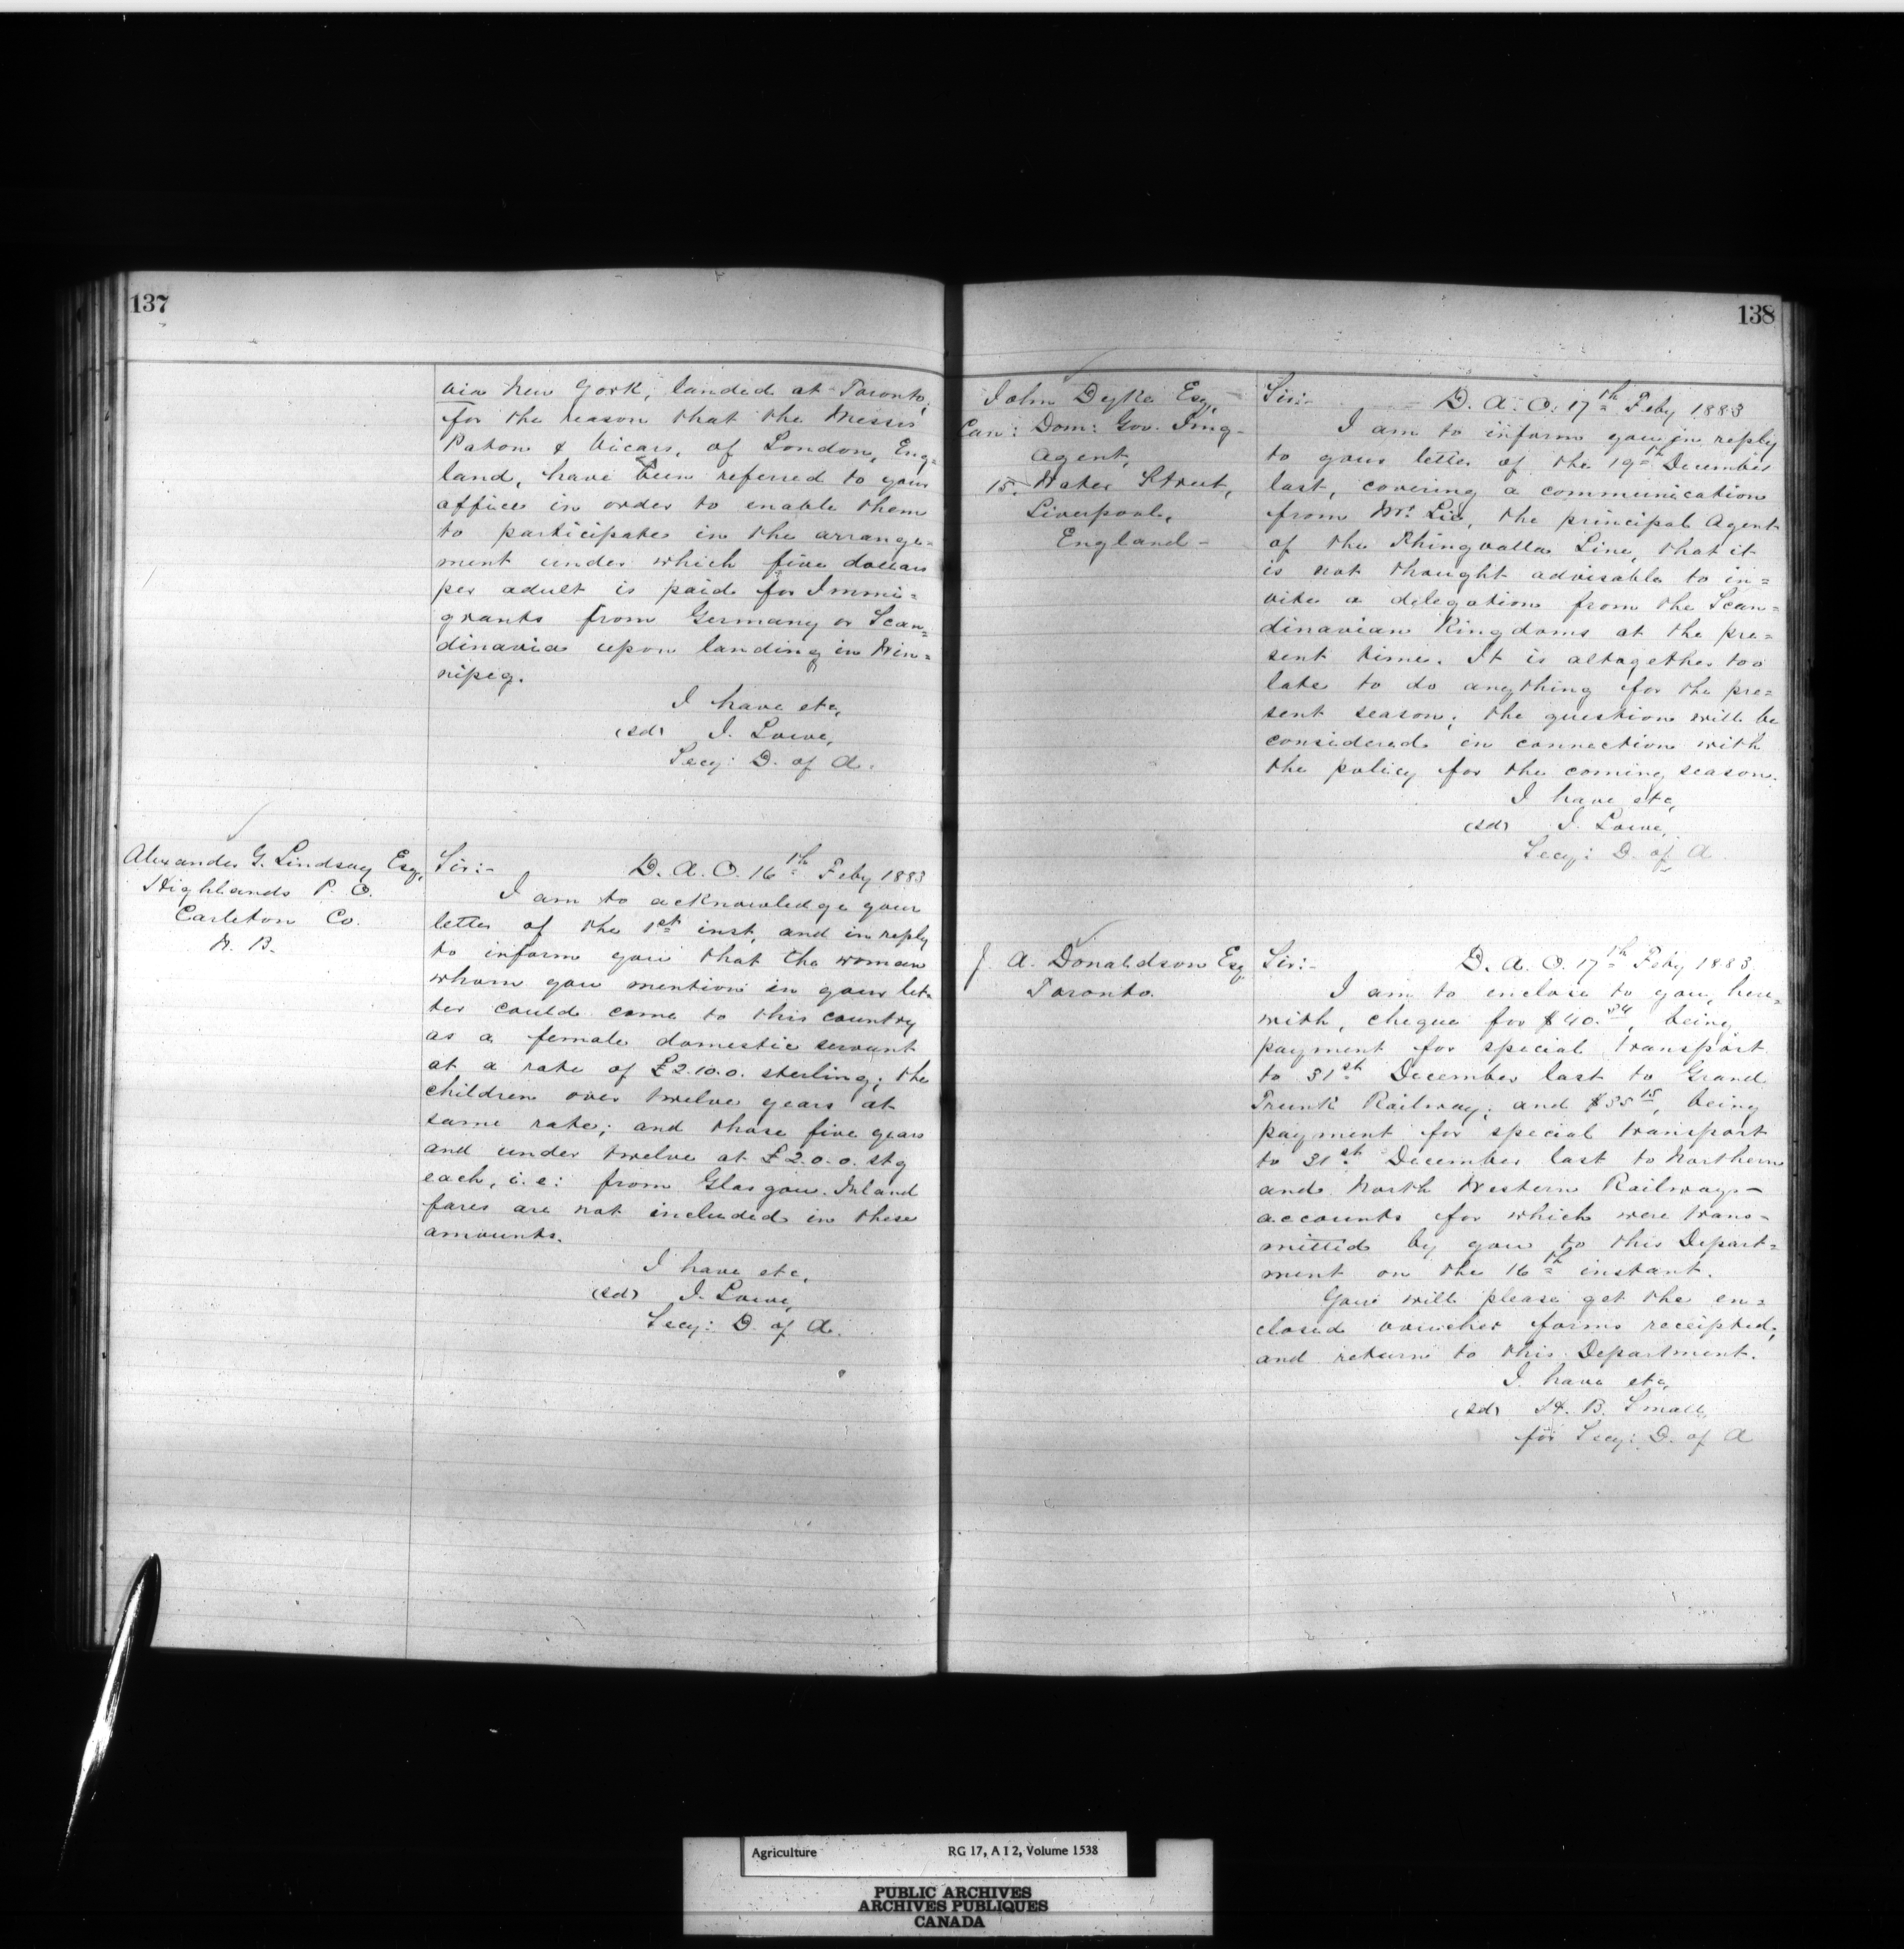 137
via New York, landed at Toronto,
for the reason that the Messrs
Paton & Vicars, of London, Eng=
land, have been referred to your
office in order to enable them
to participate in the arrange=
ment under which five dollars
per adult is paid for Immi=
grants from Germany or Scan=
dinavia upon landing in Win=
nipeg.
I have etc,
(sd) J. Lowe,
Secy: D. of A.
Alexander G. Lindsay Esq,
Highlands P. O.
Carleton Co.
N. B.
Sir:- D. A. O. 16th Feby 1883
I am to acknowledge your
letter of the 1st inst, and in reply
to inform you that the woman
whom you mention in your let=
ter could come to this country
as a female domestic servant
at a rate of £2.10.0. sterling; the
children over twelve years at
same rate; and those five years
and under twelve at £2.0.0. stg
each, i.e: from Glasgow. Inland
fares are not included in these
amounts.
I have etc,
(sd) J. Lowe,
Secy: D. of A.
138
John Dyke Esq,
Can: Dom: Gov. Img-
Agent,
15. Water Street,
Liverpool,
England-
Sir:- D. A. O. 17th Feby 1883
I am to inform you in reply
to your letter of the 19th December
last, covering a communication
from Mr. Lie, the principal Agent
of the Thingvalla Line, that it
is not thought advisable to in=
vite a delegation from the Scan=
dinavian Kingdoms at the pre=
sent time. It is altogether too
late to do anything for the pre=
sent season; the question will be
considered in connection with
the policy for the coming season.
I have etc,
(sd) J. Lowe,
Secy: D. of A
J. A. Donaldson Esq
Toronto.
Sir:- D. A. O. 17th Feby 1883
I am to enclose to you, here=
with, cheque for $40.84, being
payment for special transport
to 31st December last to Grand
Trunk Railway; and $35 15, being
payment for special transport
to 31st December last to Northern
and North Western Railways-
accounts for which were trans-
mitted by you to this Depart=
ment on the 16th instant.
You will please get the en=
closed voucher forms receipted,
and return to this Department.
I have etc,
(sd) H. B. Small,
for Secy: D. of A
Agriculture RG 17, A I 2, Volume 1538
PUBLIC ARCHIVES
ARCHIVES PUBLIQUES
CANADA